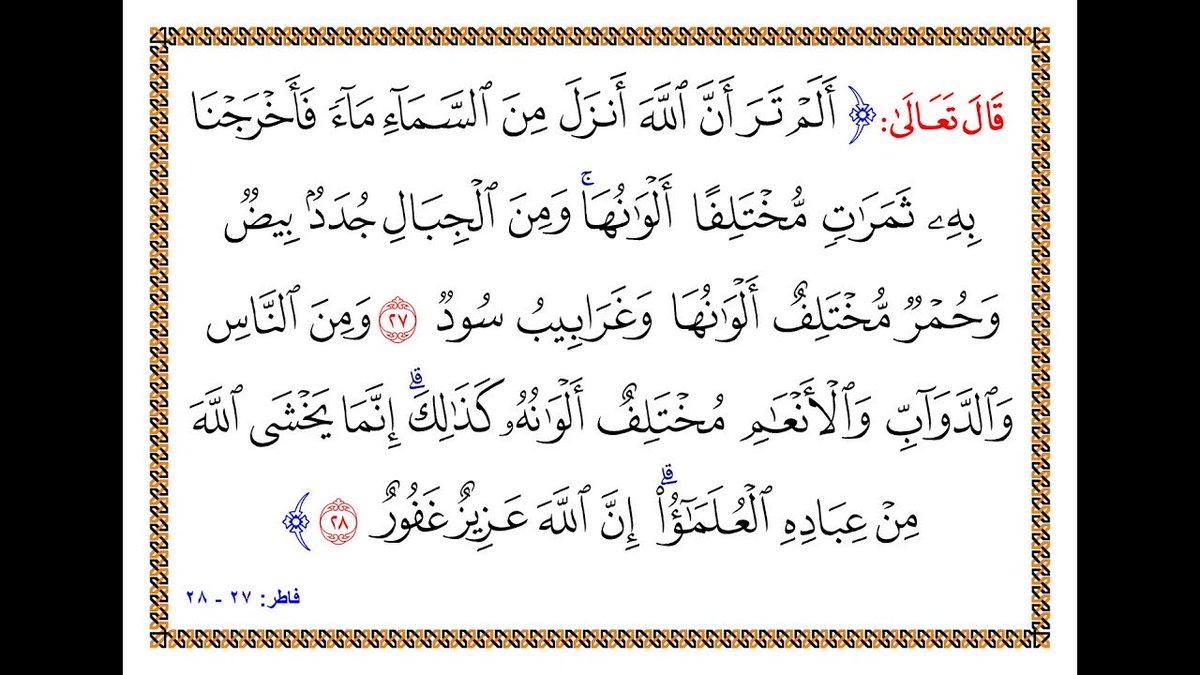 قَالَ تَعَالَىٰ: ﴿ أَلَمۡ تَرَ أَنَّ ٱللَّهَ أَنزَلَ مِنَ ٱلسَّمَآءِ مَآءٗ فَأَخۡرَجۡنَا
بِهِۦ ثَمَرَٰتٖ مُّخۡتَلِفًا أَلۡوَٰنُهَاۚ وَمِنَ ٱلۡجِبَالِ جُدَدُۢ بِيضٞ
وَحُمۡرٞ مُّخۡتَلِفٌ أَلۡوَٰنُهَا وَغَرَابِيبُ سُودٞ ٢٧ وَمِنَ ٱلنَّاسِ
وَٱلدَّوَآبِّ وَٱلۡأَنۡعَٰمِ مُخۡتَلِفٌ أَلۡوَٰنُهُۥ كَذَٰلِكَۗ إِنَّمَا يَخۡشَى ٱللَّهَ
مِنۡ عِبَادِهِ ٱلۡعُلَمَٰٓؤُاْۗ إِنَّ ٱللَّهَ عَزِيزٌ غَفُورٌ ٢٨ ﴾
فاطر: ٢٧ - ٢٨